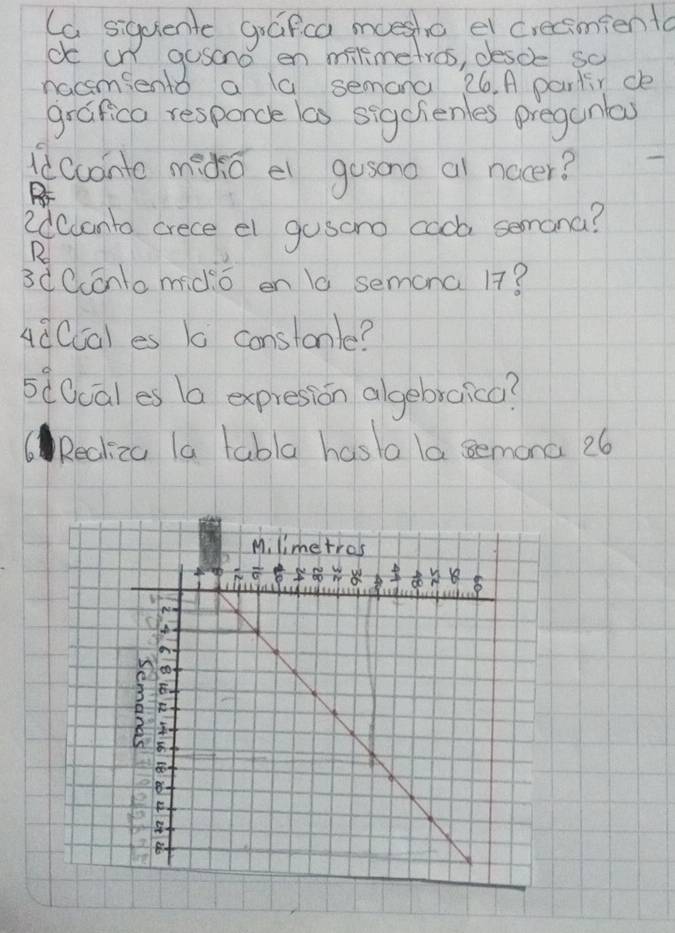 La siguiente gráfica muestra el crecimiento
de un gusano en milimetros, desde su
nacimiento a la semana 26. A partir de
gráfica responde las siguientes preguntas
1¿Cuánto midió el gusano al nacer?
R=
2¿Cuanto crece el gusano cada semana?
R
3¿Cuánto midió en la semana 17?
4¿Cuál es la constante?
5¿Cuál es la expresión algebraica?
6 Realiza la tabla hasta la semana 26
Milimetros
4 8 12 16 20 24 28 32 36 40 44 48 52 56 60
2 4 6 8 10 12 14 16 18 20 22 24 26
Semanas